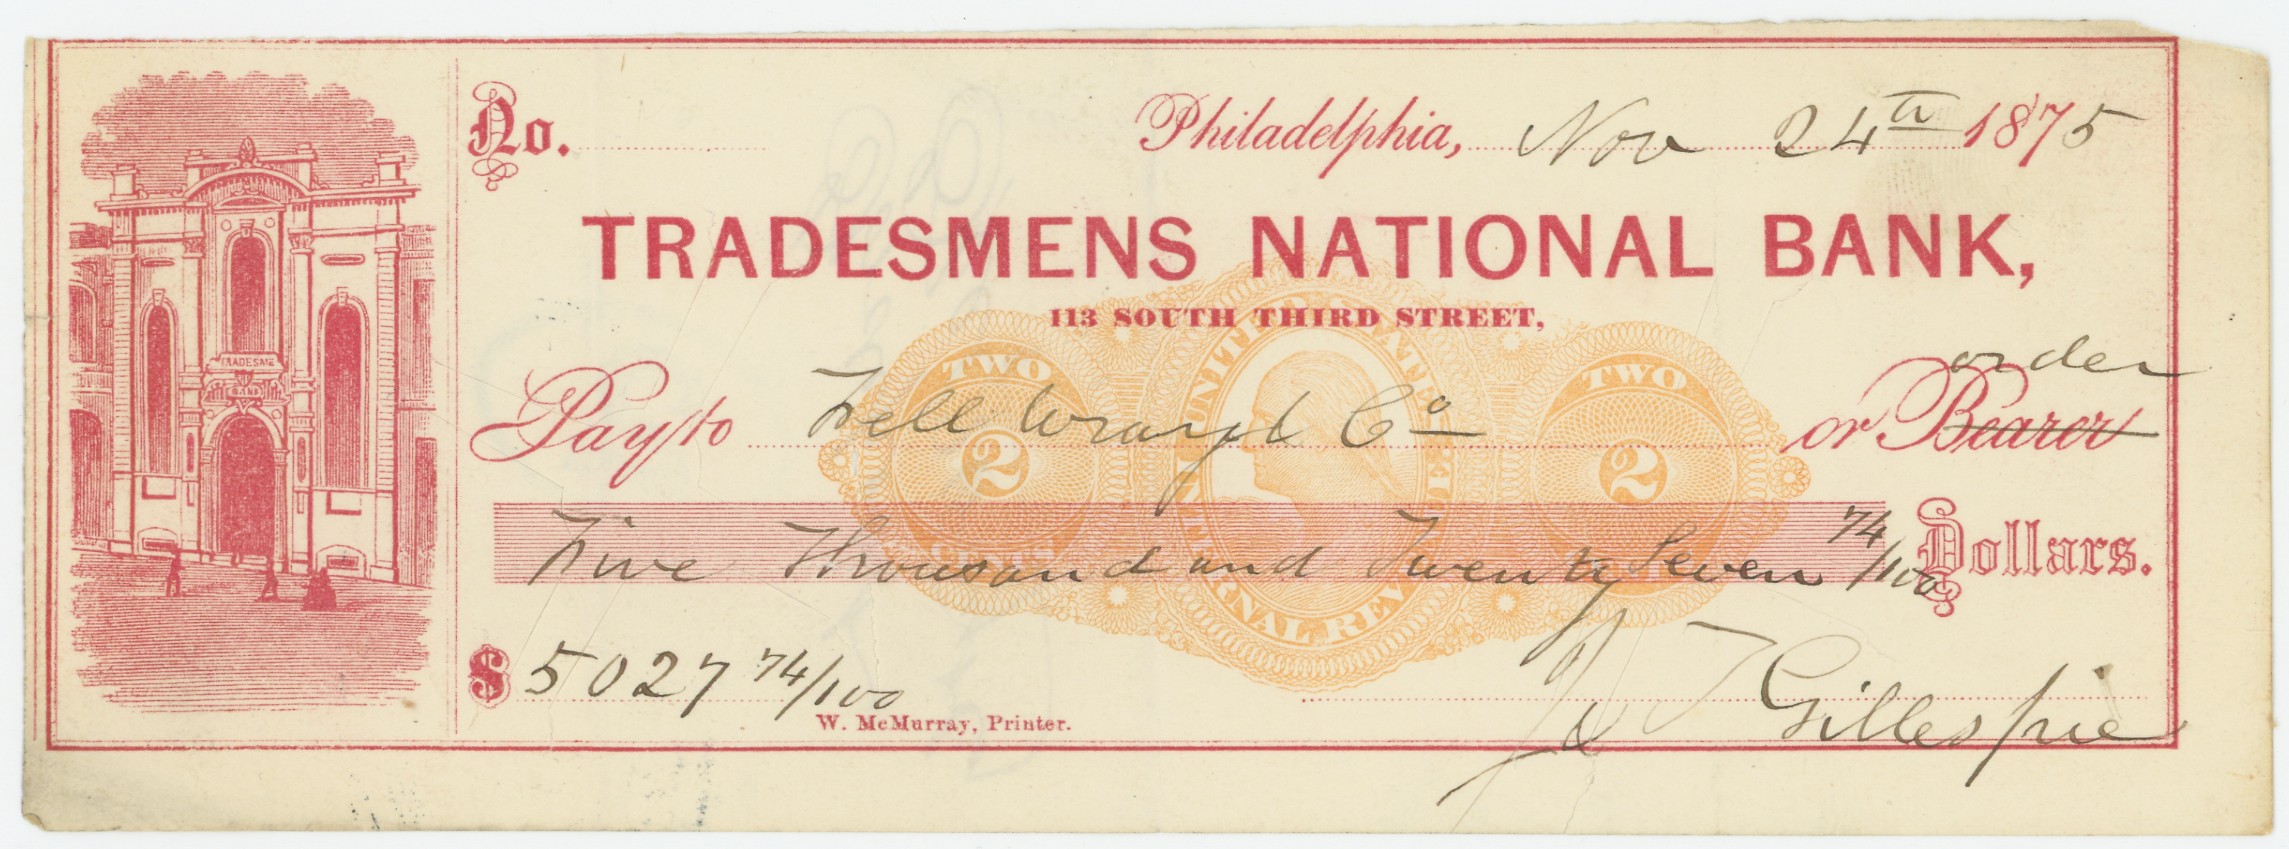 No. Philadelphia, Nov 24th 1875
TRADESMENS NATIONAL BANK,
113 SOUTH THIRD STREET,
order
Pay to Fell Wray & Co or Bearer
Five Thousand and Twenty Seven 74/100 Dollars.
$ 5027 74/100
Gillespie
W. McMurray, Printer.
TRADESMENS
BANK
UNITED STATES
INTERNAL REVENUE
TWO
2
CENTS
TWO
2